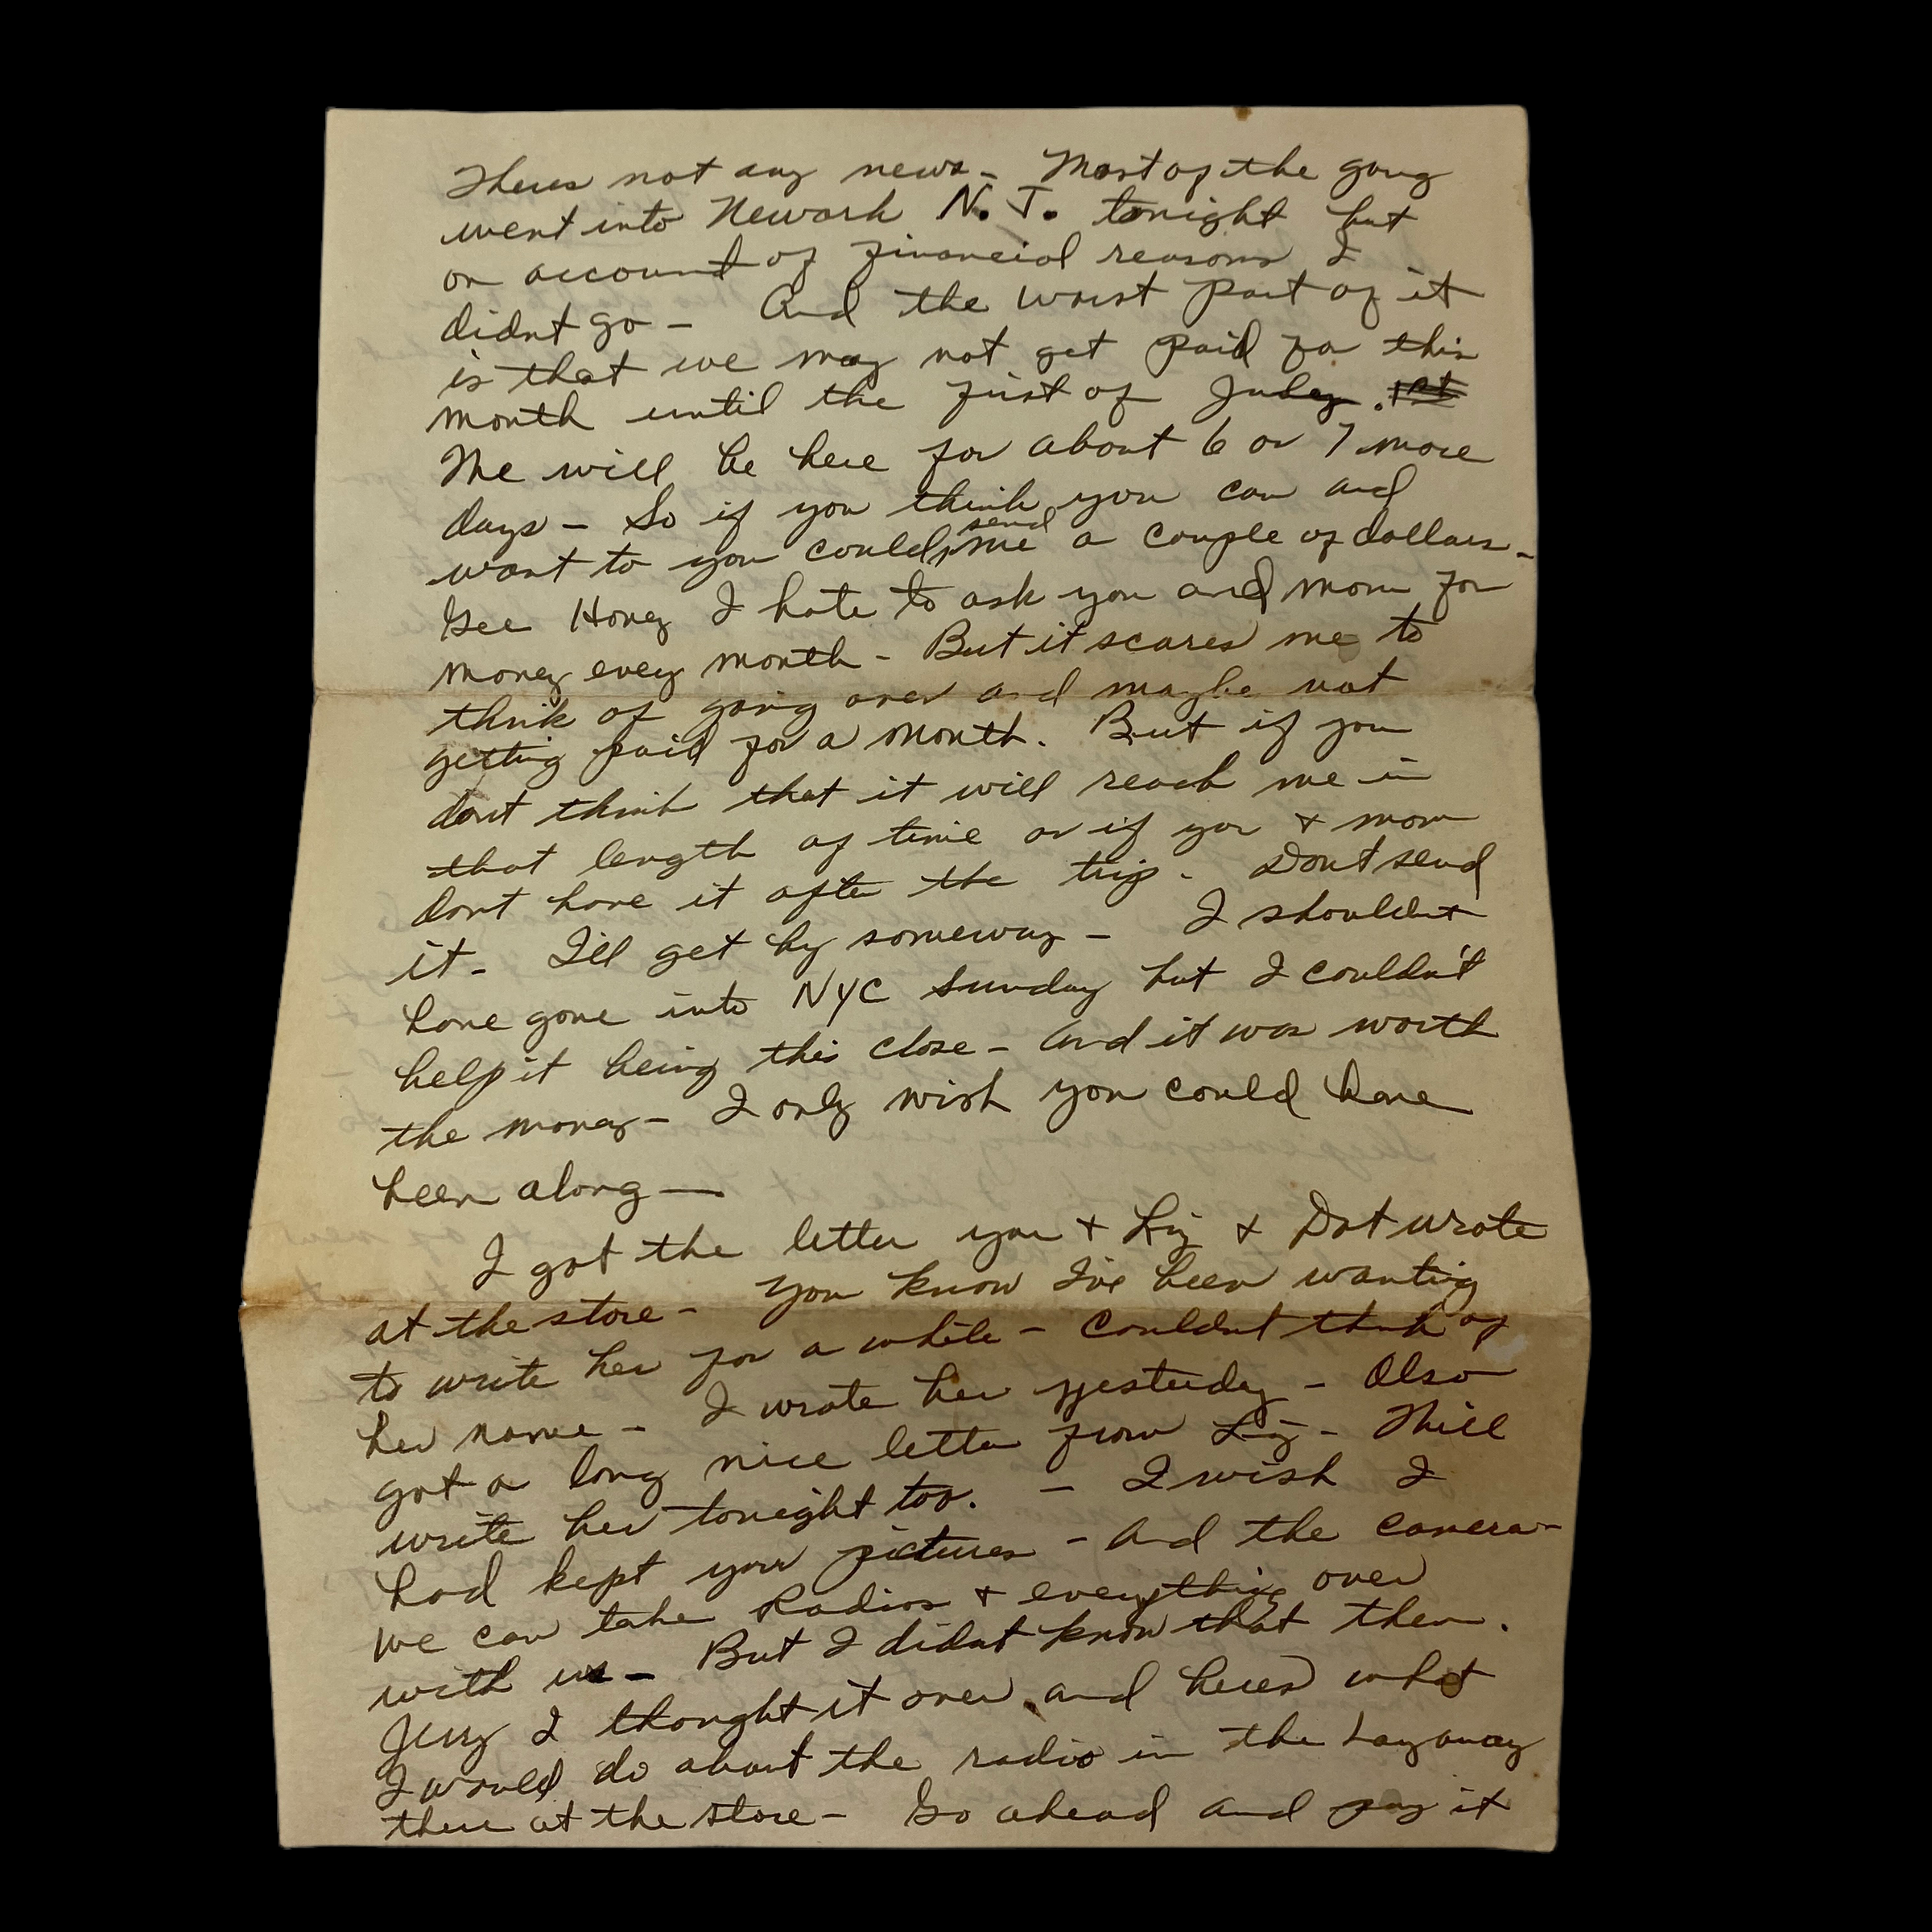 Theres not any news - Most of the gang
went into Newark N.J. tonight but
on account of financial reasons I
didnt go - And the worst part of it
is that we may not get paid for this
month until the first of July.
We will be here for about 6 or 7 more
days - So if you think you can and
want to you could send me a couple of dollars -
Gee Honey I hate to ask you and mom for
money every month - But it scares me to
think of going over and maybe not
getting paid for a month. But if you
dont think that it will reach me in
that length of time or if you + mom
dont have it after the trip - Dont send
it - I'll get by someway - I shouldnt
have gone into NYC Sunday but I couldn't
help it being this close - And it was worth
the money - I only wish you could have
been along —
I got the letter you + Liz + Dot wrote
at the store - You know I've been wanting
to write her for a while - Couldnt think of
her name - I wrote her yesterday - Also
got a long nice letter from Liz - Will
write her tonight too. - I wish I
had kept your pictures - And the camera -
we can take Radios + everything over
with us - But I didnt know that then.
Jerry I thought it over and heres what
I would do about the radio in the Layaway
there at the store - Go ahead and pay it